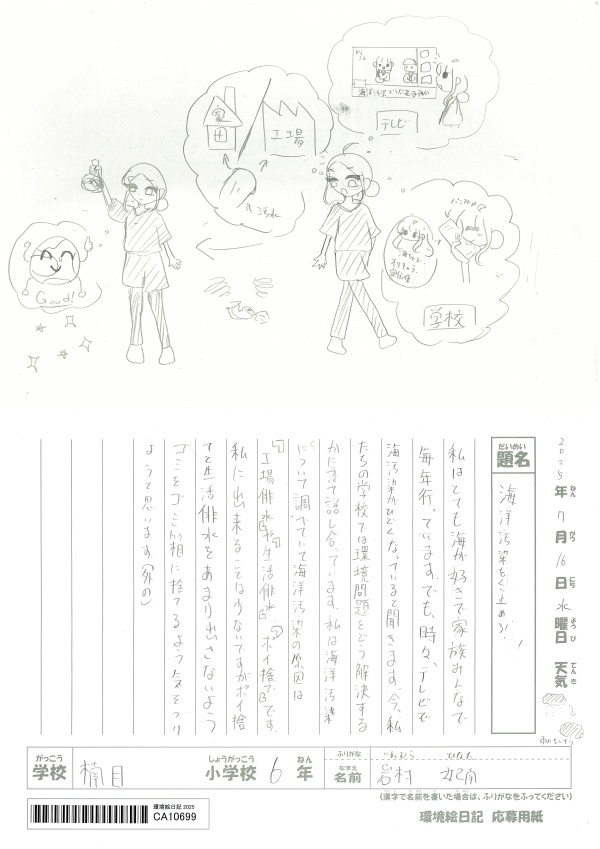 家
田
工場
汚水
テレビ
学校
Good!
2025年ねん7月がつ16日にち水曜日ようび 天気てんき
だいめい
題名
海洋汚染をくい止めろ!!
私はとても海が好きで家族みんなで
毎年行っています。でも、時々、テレビで
海汚染がひどくなっていると聞きます。今、私
たちの学校では環境問題をどう解決する
かだて話し合っています。私は海洋汚染
について調べていて海洋汚染の原因は
「工場俳水」や「生活俳水」「ポイ捨て」です。
私に出来ることは少ないですがポイ捨
てや生活俳水をあまり出さないよう
ゴミをゴミ箱に捨てるよう気をつけ
ようと思います。
がっこう
学校
楠目
しょうがっこう
小学校
6
ねん
年
ふりがな
いわむら ひなた
なまえ
名前
岩村 妃南
(漢字で名前を書いた場合は、ふりがなをふってください)
環境絵日記 2025
CA10699
環境絵日記 応募用紙